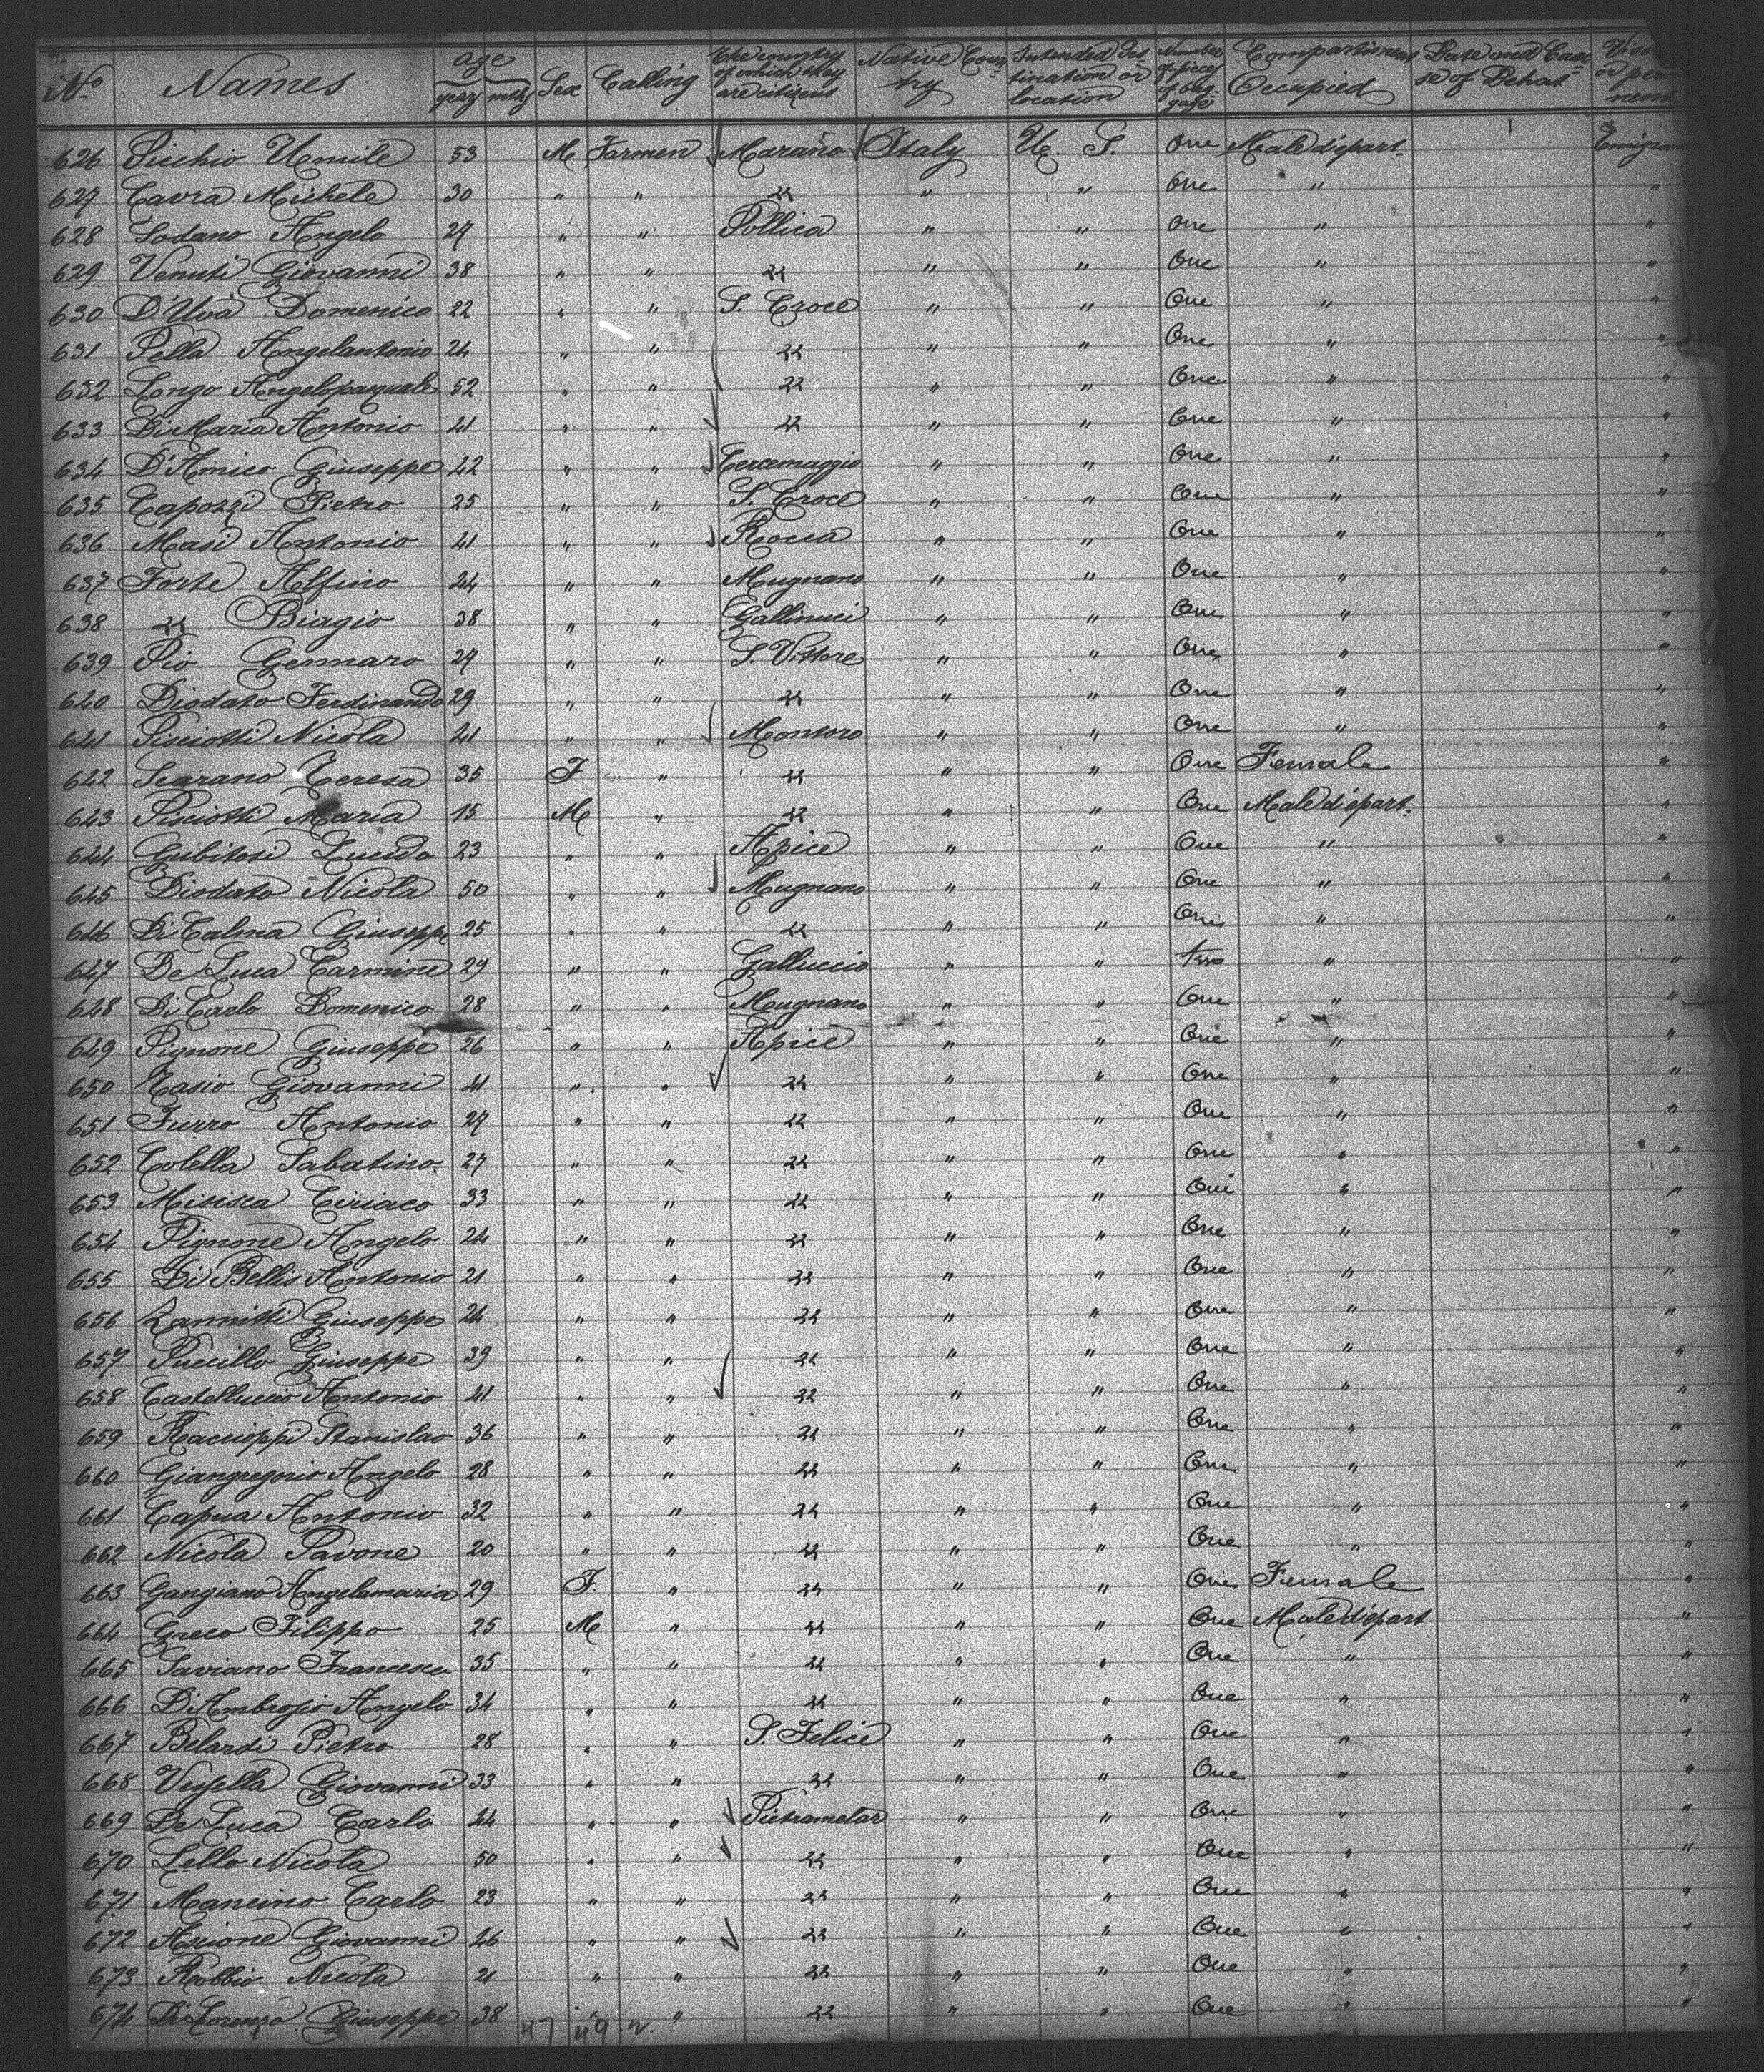 No Names age Sex Calling The country of which they are citizens Native Country Intended Destination or location Number of pieces of baggage Compartiment Occupied Date and Cause of Dehat
years mths
626 Picchio Umile 53 M Farmen Marano Italy U. S. One Male départ.
627 Cavra Michele 30 " " " " " One " "
628 Sodano Angelo 27 " " Pollica " " One " "
629 Venuti Giovanni 38 " " " " " One " "
630 D'Uva Domenico 22 " " S. Croce " " One " "
631 Pella Angelantonio 24 " " " " " One " "
632 Longo Angelopasquale 52 " " " " " One " "
633 Di Maria Antonio 41 " " " " " One " "
634 D'Amico Giuseppe 42 " " Cercemaggio " " One " "
635 Capozzi Pietro 25 " " S. Croce " " One " "
636 Masi Antonio 41 " " Rocca " " One " "
637 Forte Alfino 24 " " Mugnano " " One " "
638 " Biagio 38 " " Gallinuci " " One " "
639 Pio Gennaro 27 " " S. Vittore " " One " "
640 Diodato Ferdinando 29 " " " " " One " "
641 Pisciotti Nicola 41 " " Montoro " " One " "
642 Scarano Teresa 35 F " " " " One Female "
643 Pisciotti Maria 15 M " " " " One Male départ. "
644 Gubitosi Lucido 23 " " Apice " " One " "
645 Diodato Nicola 50 " " Mugnano " " One " "
646 Di Calma Giuseppe 25 " " " " " One " "
647 De Luca Carmine 29 " " Galluccio " " two " "
648 Di Carlo Domenico 28 " " Mugnano " " One " "
649 Pignone Giuseppe 26 " " Apice " " One " "
650 Tasio Giovanni 41 " " " " " One " "
651 Furro Antonio 27 " " " " " One " "
652 Colella Sabatino 27 " " " " " One " "
653 Misisca Ciriaco 33 " " " " " One " "
654 Pignone Angelo 24 " " " " " One " "
655 Di Bellis Antonio 21 " " " " " One " "
656 Zannitti Giuseppe 24 " " " " " One " "
657 Puccillo Giuseppe 39 " " " " " One " "
658 Castelluccio Antonio 41 " " " " " One " "
659 Raccioppi Stanislao 36 " " " " " One " "
660 Giangregorio Angelo 28 " " " " " One " "
661 Capua Antonio 32 " " " " " One " "
662 Nicola Pavone 20 " " " " " One " "
663 Gangiano Angelamaria 29 F. " " " " One Female "
664 Greco Filippo 25 M " " " " One Male départ "
665 Saviano Francesco 35 " " " " " One " "
666 D'Ambrosio Angelo 34 " " " " " One " "
667 Belardi Pietro 28 " " S. Felice " " One " "
668 Vessella Giovanni 33 " " " " " One " "
669 De Luca Carlo 44 " " Pietramelar " " One " "
670 Lello Nicola 50 " " " " " One " "
671 Mancino Carlo 23 " " " " " One " "
672 Ascione Giovanni 46 " " " " " One " "
673 Robbio Nicola 21 " " " " " One " "
674 Di Lorenzo Giuseppe 38 " " " " " One " "